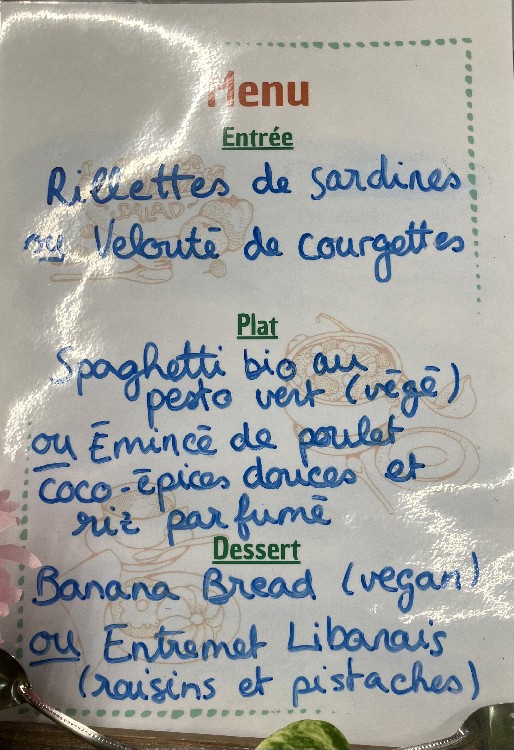 Menu
Entrée
Rillettes de sardines
ou Velouté de courgettes
SALAD
Plat
Spaghetti bio au
pesto vert (végé)
ou Émincé de poulet
coco-épices douces et
riz parfumé
Dessert
Banana Bread (vegan)
ou Entremet Libanais
(raisins et pistaches)